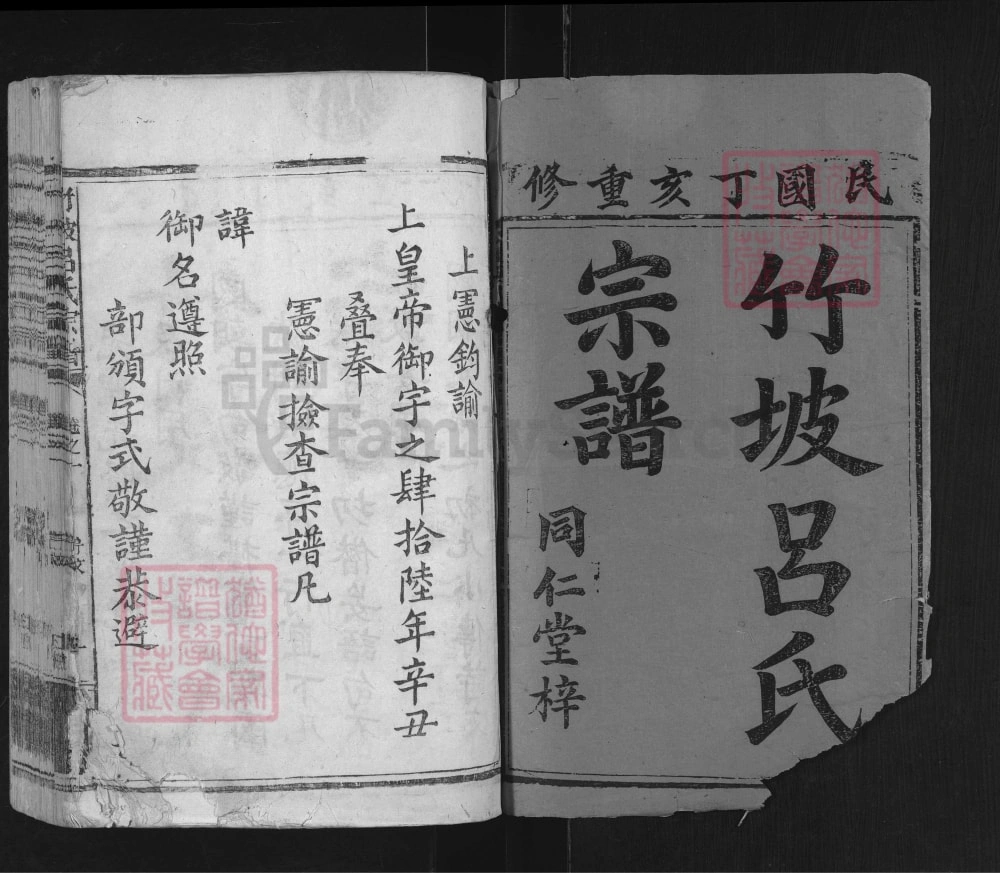 民國丁亥重修
竹坡呂氏
宗譜
同仁堂梓
上憲鈞諭
上皇帝御宇之肆拾陸年辛丑
叠奉
憲諭撿查宗譜凡
諱
御名遵照
部頒字式敬謹恭避
竹坡呂氏宗譜
卷之一
FamilySearch